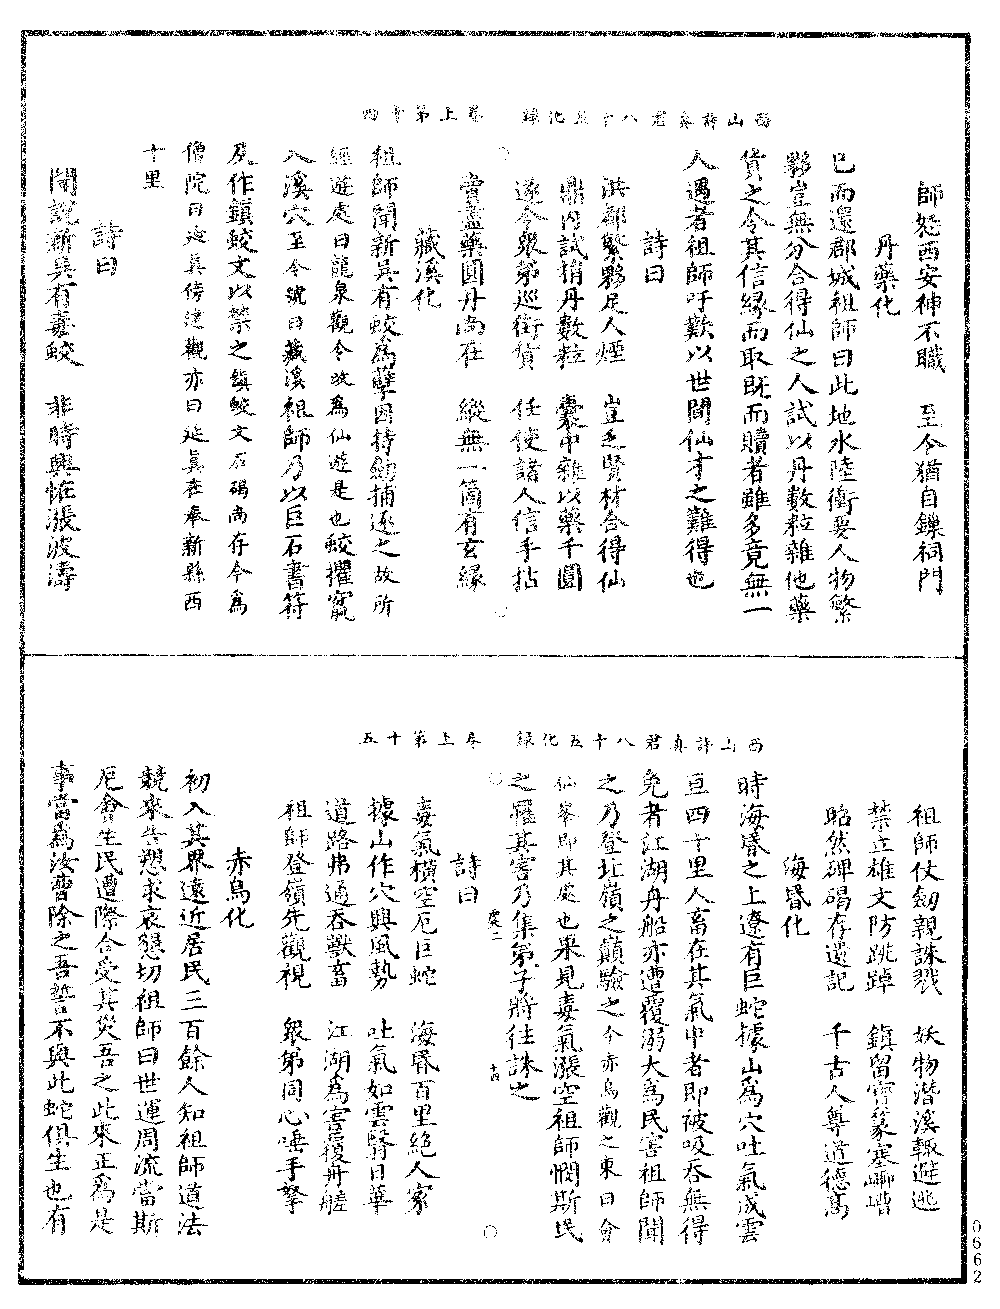 西山許真君八十五化録　卷上第十四
師怒西安神不職　至今猶自鏁祠門
丹藥化
已而還郡城祖師曰此地水陸衝要人物繁
夥豈無分合得仙之人試以丹數粒雜他藥
貨之令其信緣而取旣而贖者雖多竟無一
人遇者祖師吁歎以世間仙才之難得也
詩曰
洪都繁夥足人煙　豈乏賢材合得仙
鼎內試捎丹數粒　囊中雜以藥千圓
遂令衆弟巡衢貨　任使諸人信手拈
賣盡藥圓丹尚在　縱無一箇有玄緣
藏溪化
祖師聞新吳有蛟為孽因持劒捕逐之故所
經遊處曰龍泉觀今改為仙遊是也蛟懼竄
入溪穴至今號曰藏溪祖師乃以巨石書符
及作鎮蛟文以禁之鎮蛟文石碣尚存今為
僧院曰延真傍建觀亦曰延真在奉新縣西
十里
詩曰
聞說新吳有毒蛟　非時興怪漲波濤
西山許真君八十五化録　卷上第十五
祖師仗劒親誅戮　妖物潛溪輙避逃
禁立雄文防跳踔　鎮留寶篆塞嘲嘈
昭然碑碣存還記　千古人尊道德高
海昏化
時海昏之上遼有巨蛇據山為穴吐氣成雲
亘四十里人畜在其氣中者即被吸吞無得
免者江湖舟船亦遭覆溺大為民害祖師聞
之乃登北嶺之巔驗之今赤烏觀之東曰會
仙峯即其處也果見毒氣漲空祖師憫斯民
之罹其害乃集弟子將往誅之
虞二
十五
詩曰
毒氣橫空厄巨蛇　海昏百里絕人家
據山作穴興風勢　吐氣如雲翳日華
道路弗通吞獸畜　江湖為害覆舟艖
祖師登嶺先觀視　衆弟同心唾手拏
赤烏化
初入其界遠近居民三百餘人知祖師道法
競來告愬求哀懇切祖師曰世運周流當斯
厄會生民遭際合受其災吾之此來正為是
事當為汝曹除之吾誓不與此蛇俱生也有
0662